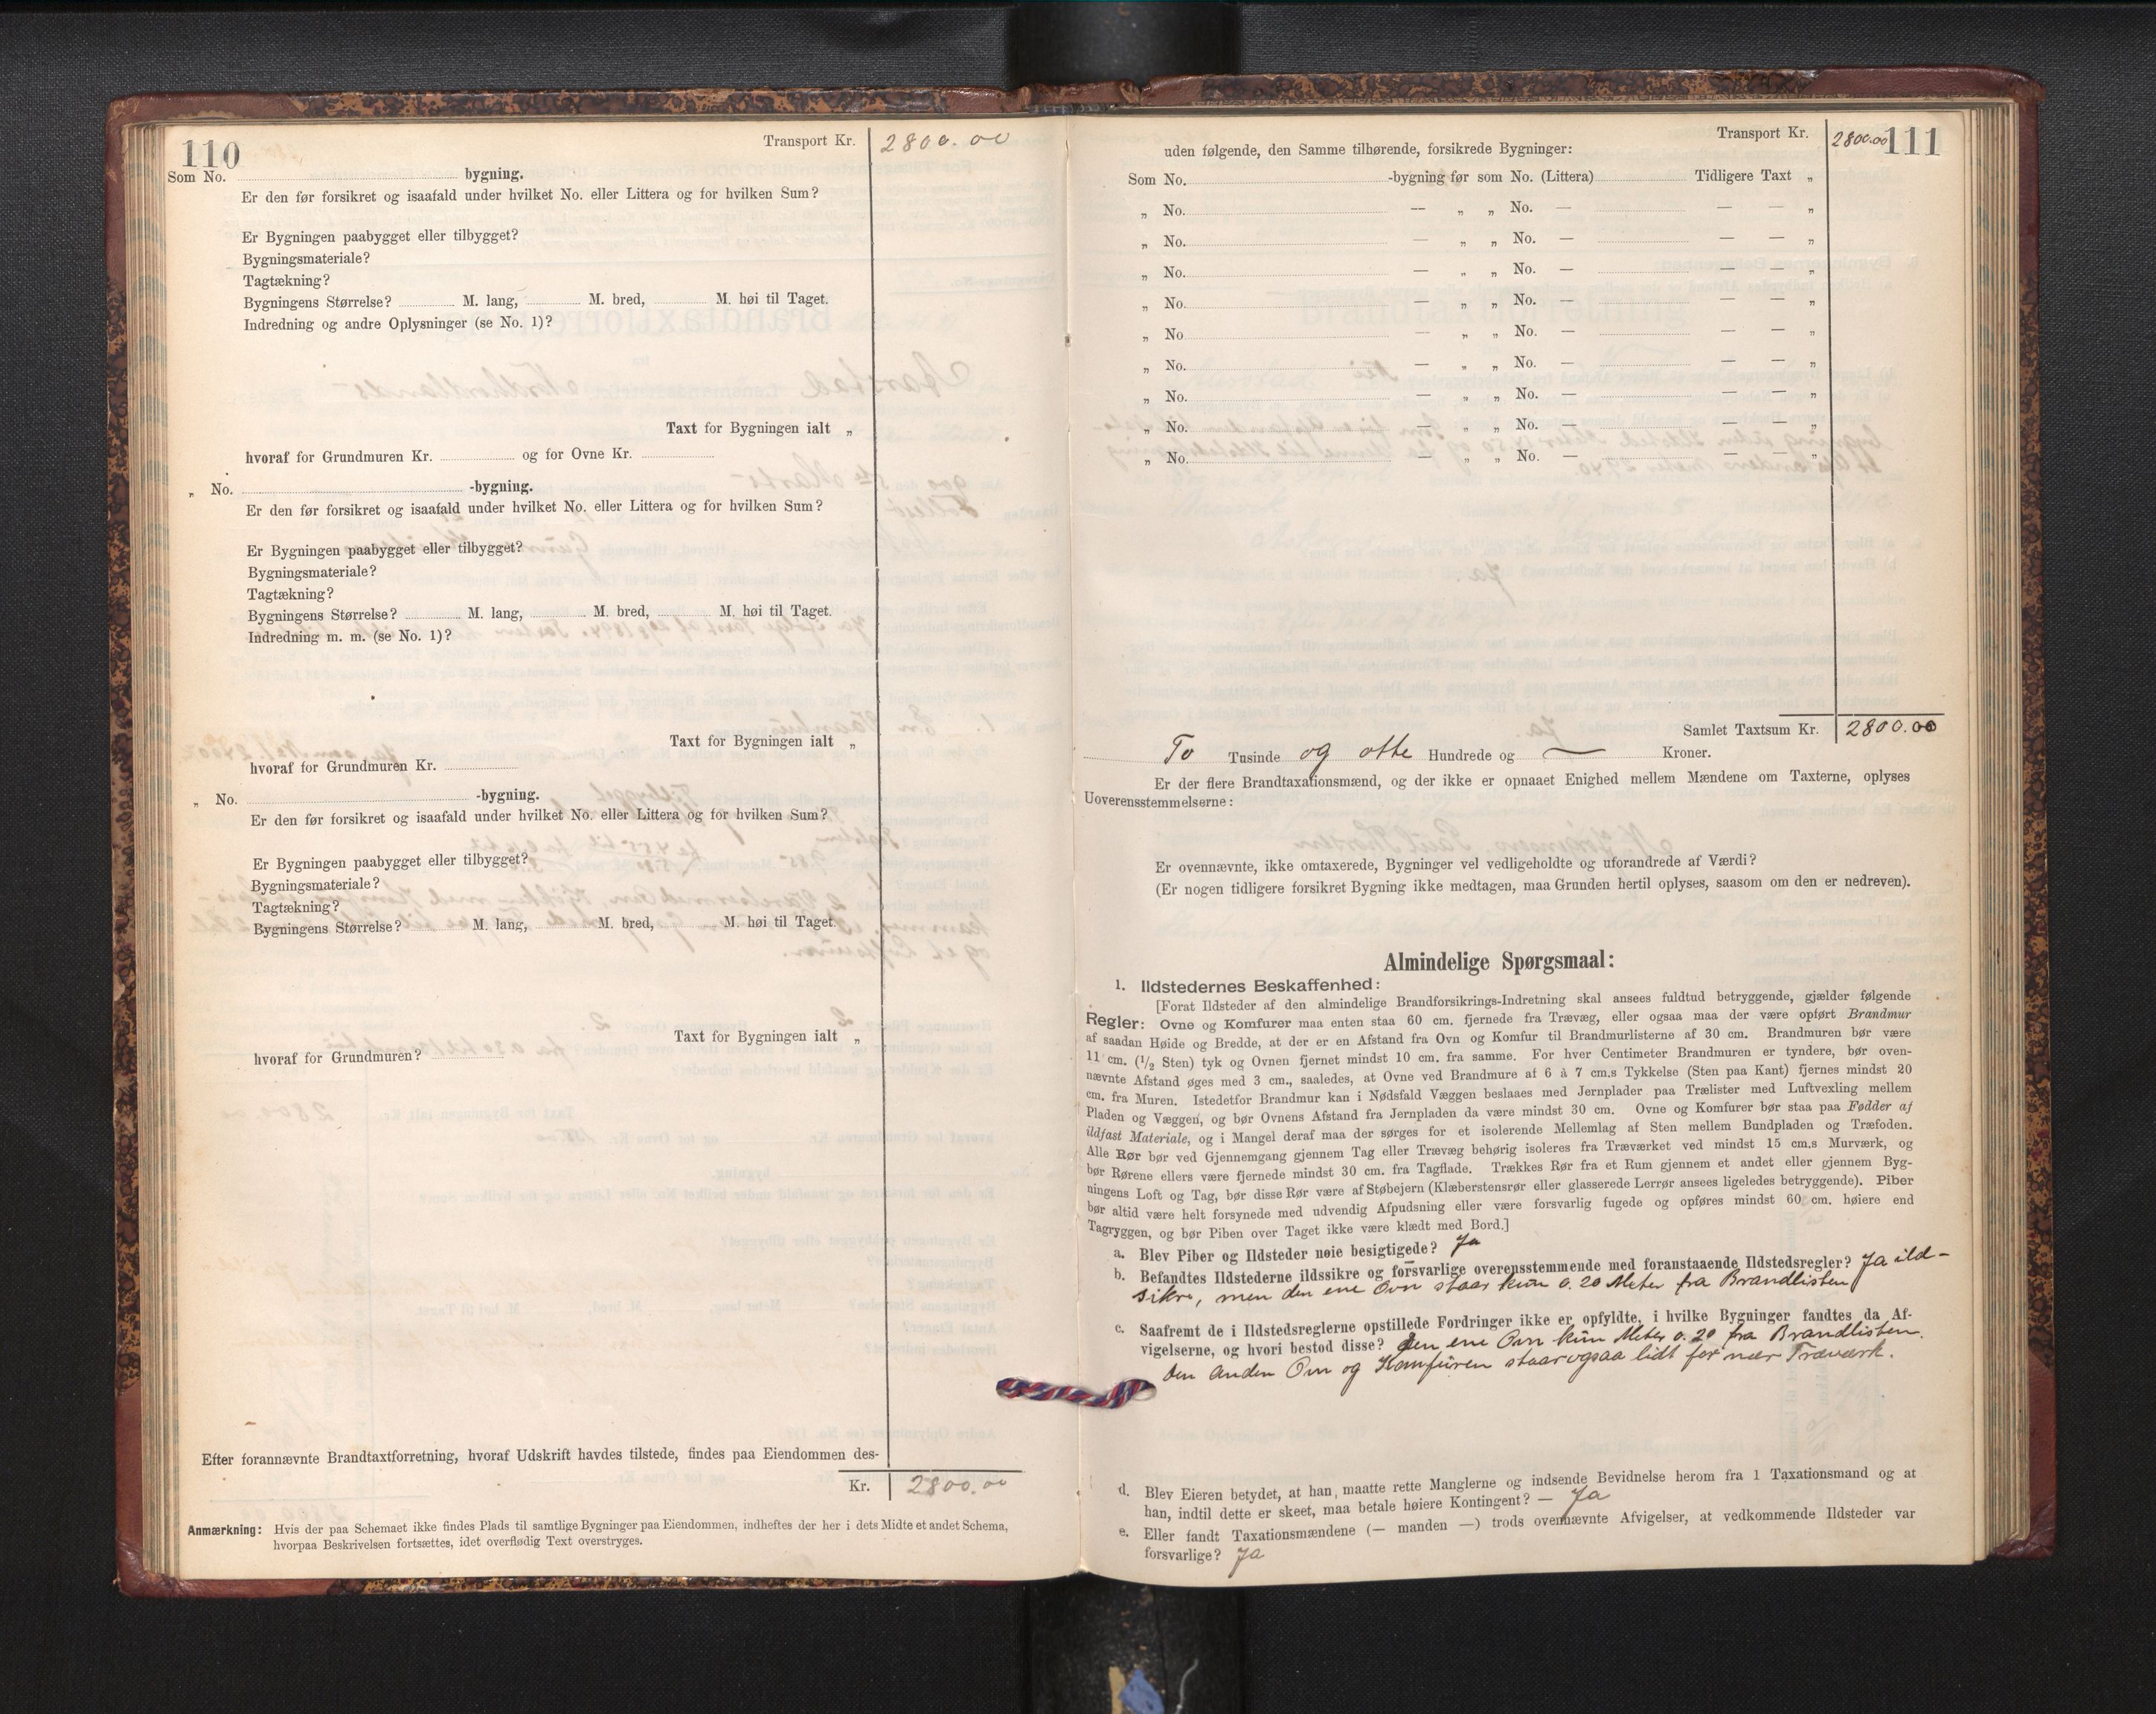 110
Transport Kr. 2800.00
Som No. bygning.
Er den før forsikret og isaafald under hvilket No. eller Littera og for hvilken Sum?
Er Bygningen paabygget eller tilbygget?
Bygningsmateriale?
Tagtækning?
Bygningens Størrelse? M. lang, M. bred, M. høi til Taget.
Indredning og andre Oplysninger (se No. 1)?
Taxt for Bygningen ialt „
hvoraf for Grundmuren Kr. og for Ovne Kr.
„ No. -bygning.
Er den før forsikret og isaafald under hvilket No. eller Littera og for hvilken Sum?
Er Bygningen paabygget eller tilbygget?
Bygningsmateriale?
Tagtækning?
Bygningens Størrelse? M. lang, M. bred, M. høi til Taget.
Indredning m. m. (se No. 1)?
Taxt for Bygningen ialt „
hvoraf for Grundmuren Kr.
„ No. -bygning.
Er den før forsikret og isaafald under hvilket No. eller Littera og for hvilken Sum?
Er Bygningen paabygget eller tilbygget?
Bygningsmateriale?
Tagtækning?
Bygningens Størrelse? M. lang, M. bred, M. høi til Taget.
Taxt for Bygningen ialt „
hvoraf for Grundmuren?
Efter forannævnte Brandtaxtforretning, hvoraf Udskrift havdes tilstede, findes paa Eiendommen des-
Kr. 2800.00
Anmærkning: Hvis der paa Schemaet ikke findes Plads til samtlige Bygninger paa Eiendommen, indheftes der her i dets Midte et andet Schema,
hvorpaa Beskrivelsen fortsættes, idet overflødig Text overstryges.
Transport Kr. 2800.00 111
uden følgende, den Samme tilhørende, forsikrede Bygninger:
Som No. -bygning før som No. (Littera) Tidligere Taxt „
„ No. — „ „ No. — — — „
„ No. — „ „ No. — — — „
„ No. — „ „ No. — — — „
„ No. — „ „ No. — — — „
„ No — „ „ No. — — — „
„ No. — „ „ No. — — — „
„ No. — „ „ No. — — — „
„ No. — „ „ No. — — — „
„ No. — „ „ No. — — — „
Samlet Taxtsum Kr. 2800.00
To Tusinde og otte Hundrede og — Kroner.
Er der flere Brandtaxationsmænd, og der ikke er opnaaet Enighed mellem Mændene om Taxterne, oplyses
Uoverensstemmelserne:
Er ovennævnte, ikke omtaxerede, Bygninger vel vedligeholdte og uforandrede af Værdi?
(Er nogen tidligere forsikret Bygning ikke medtagen, maa Grunden hertil oplyses, saasom om den er nedreven).
Almindelige Spørgsmaal:
1. Ildstedernes Beskaffenhed:
[Forat Ildsteder af den almindelige Brandforsikrings-Indretning skal ansees fuldtud betryggende, gjælder følgende
Regler: Ovne og Komfurer maa enten staa 60 cm. fjernede fra Trævæg, eller ogsaa maa der være opført Brandmur
af saadan Høide og Bredde, at der er en Afstand fra Ovn og Komfur til Brandmurlisterne af 30 cm. Brandmuren bør være
11 cm. (1/2 Sten) tyk og Ovnen fjernet mindst 10 cm. fra samme. For hver Centimeter Brandmuren er tyndere, bør oven-
nævnte Afstand øges med 3 cm., saaledes, at Ovne ved Brandmure af 6 à 7 cm.s Tykkelse (Sten paa Kant) fjernes mindst 20
cm. fra Muren. Istedetfor Brandmur kan i Nødsfald Væggen beslaaes med Jernplader paa Trælister med Luftvexling mellem
Pladen og Væggen, og bør Ovnens Afstand fra Jernpladen da være mindst 30 cm. Ovne og Komfurer bør staa paa Fødder af
ildfast Materiale, og i Mangel deraf maa der sørges for et isolerende Mellemlag af Sten mellem Bundpladen og Træfoden.
Alle Rør bør ved Gjennemgang gjennem Tag eller Trævæg behørig isoleres fra Træværket ved mindst 15 cm.s Murværk, og
bør Rørene ellers være fjernede mindst 30 cm. fra Tagflade. Trækkes Rør fra et Rum gjennem et andet eller gjennem Byg-
ningens Loft og Tag, bør disse Rør være af Støbejern (Klæberstensrør eller glasserede Lerrør ansees ligeledes betryggende). Piber
bør altid være helt forsynede med udvendig Afpudsning eller være forsvarlig fugede og opføres mindst 60 cm. høiere end
Tagryggen, og bør Piben over Taget ikke være klædt med Bord.]
a. Blev Piber og Ildsteder nøie besigtigede? Ja
b. Befandtes Ildstederne ildssikre og forsvarlige overensstemmende med foranstaaende Ildstedsregler? Ja ild-
sikre, men den ene Ovn staar kun 0.20 Meter fra Brandlisten
c. Saafremt de i Ildstedsreglerne opstillede Fordringer ikke er opfyldte, i hvilke Bygninger fandtes da Af-
vigelserne, og hvori bestod disse? Den ene Ovn kun Meter 0.20 fra Brandlisten.
Den anden Ovn og Komfuren staar ogsaa lidt for nær Træværk.
d. Blev Eieren betydet, at han maatte rette Manglerne og indsende Bevidnelse herom fra 1 Taxationsmand og at
han, indtil dette er skeet, maa betale høiere Kontingent? — Ja
e. Eller fandt Taxationsmændene (— manden —) trods ovennævnte Afvigelser, at vedkommende Ildsteder var
forsvarlige? Ja